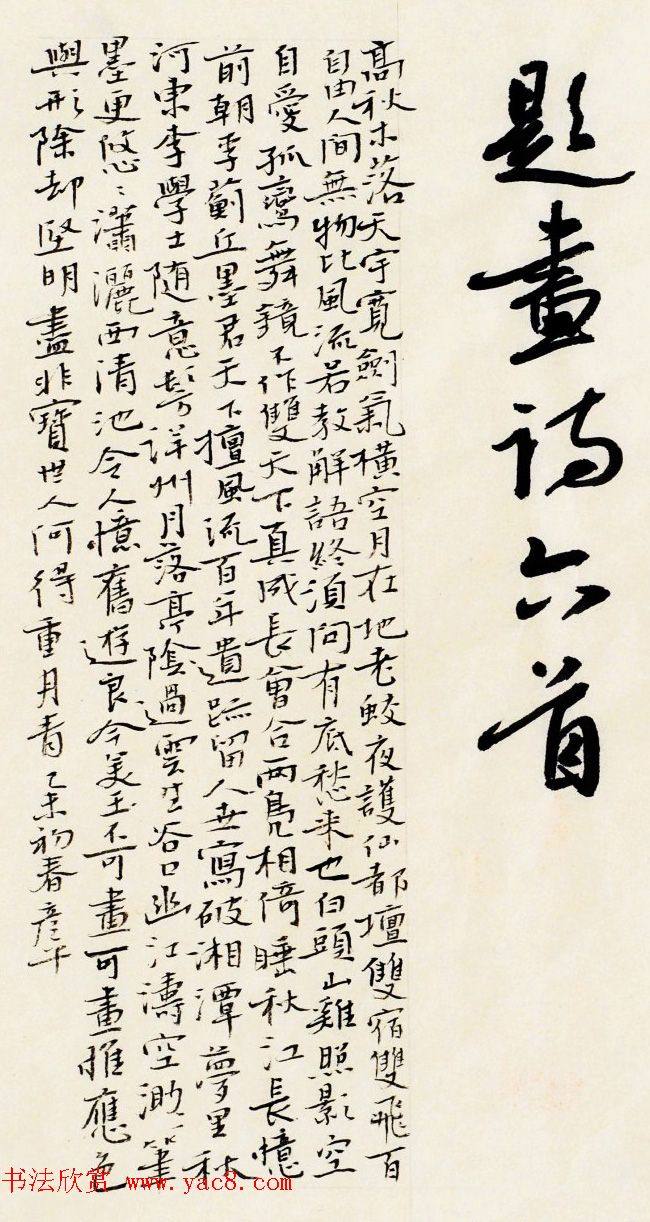 题畫诗六首
高秋木落天宇寬劍氣橫空月在地老蛟夜護仙都壇雙宿雙飛百
自由人間無物比風流若教解語終須問有底愁来也白頭山雞照影空
自愛孤鸞舞鏡不作雙天下真成長會合兩鳧相倚睡秋江長憶
前朝李薊丘墨君天下擅風流百年遺跡留人世寫破湘潭夢里秋
河東李學士随意髣洋州月落亭陰過雲生谷口幽江濤空渺筆
墨更悠〻瀟灑西清池令人憶舊遊良今美玉不可畫可畫惟應色
與形除却堅明盡非寶世人何得重丹青乙未初春彦平
书法欣赏 www.yac8.com